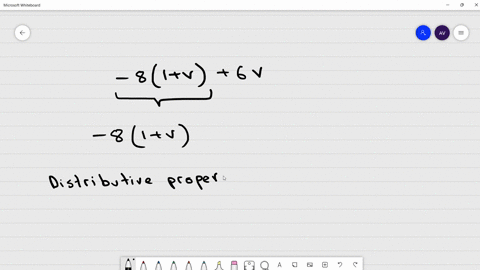 Microsoft Whiteboard
AV
-8(1+v) + 6v
-8(1+v)
Distributive proper